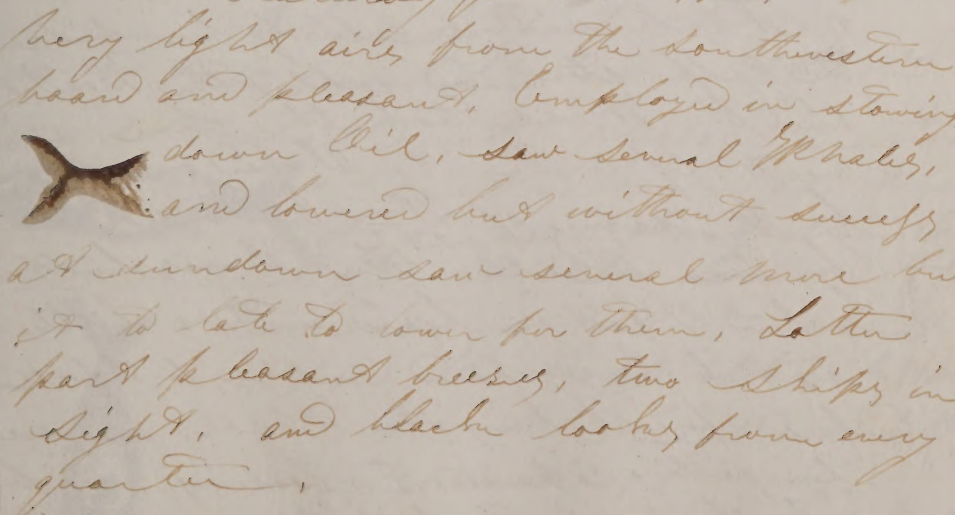 very light airs from the southwestern
board and pleasant. Employed in stowing
down Oil, saw several Whales,
and lowered but without success
at sundown saw several more bu
it to late to lower for them, Latter
part pleasant breezes, two ships in
sight, and blackn looks from every
quarter.